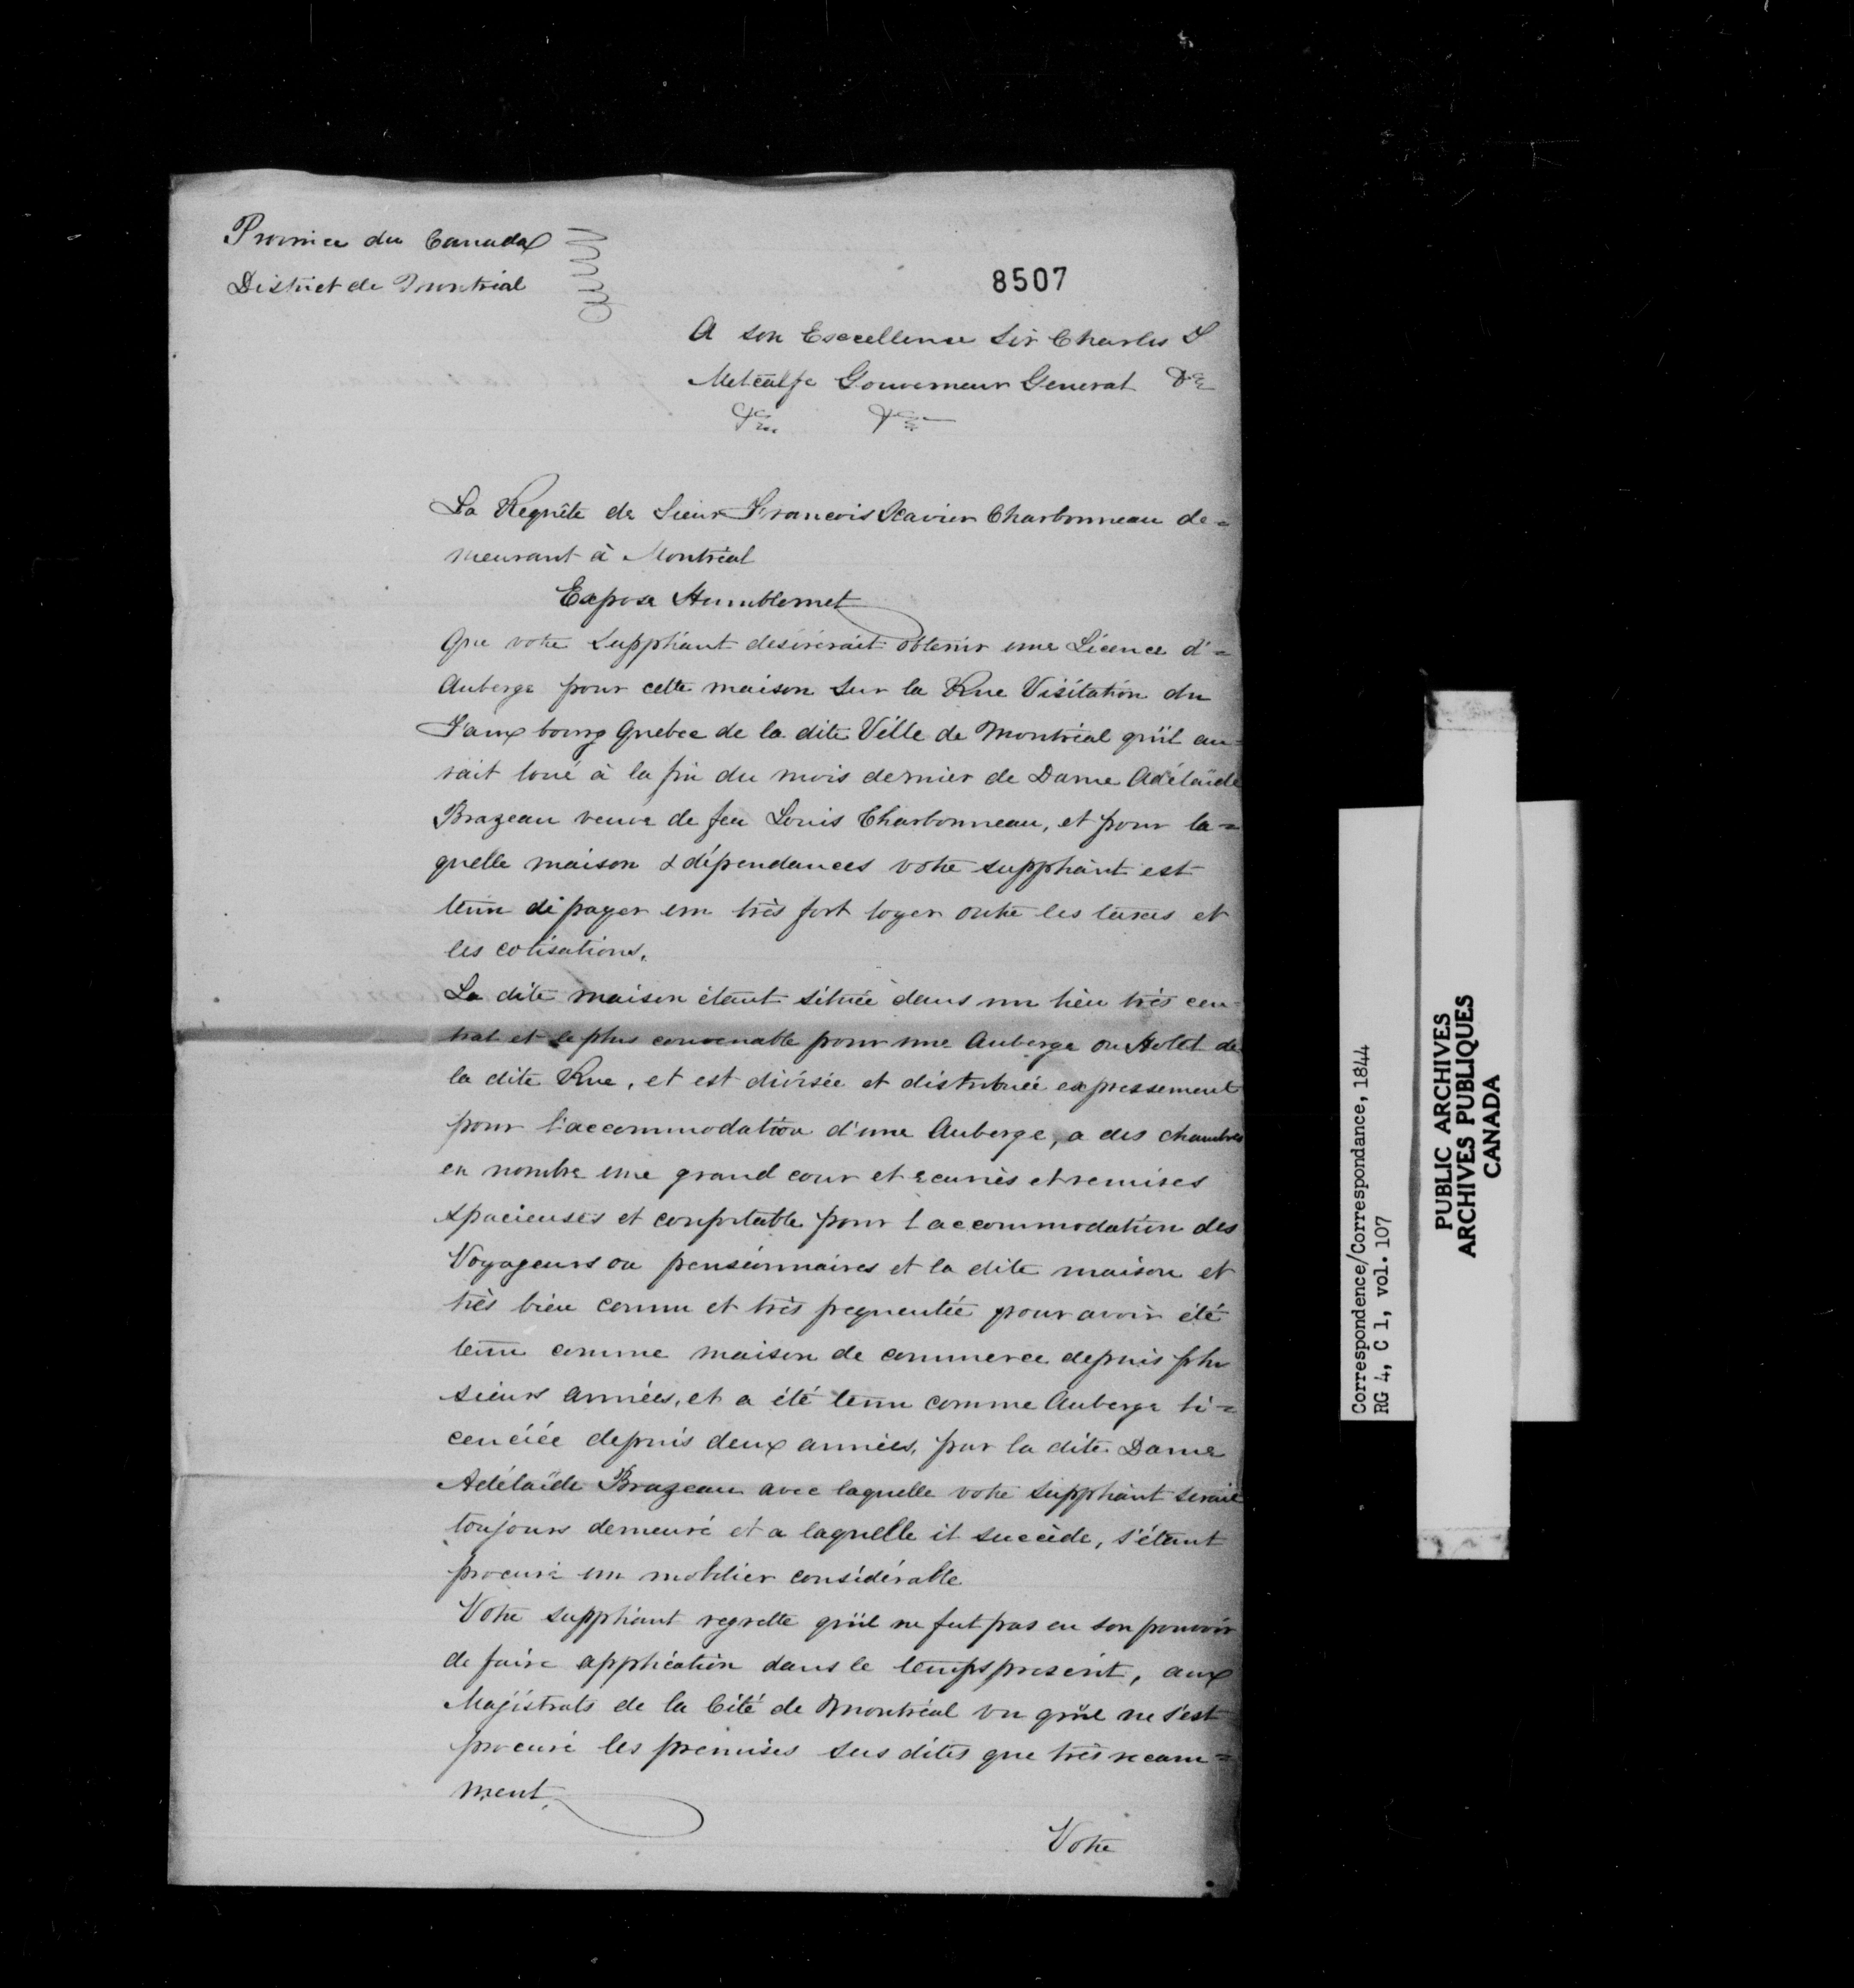 Province du Canada
District de Montréal
8507
A son Excellence Sir Charles T
Metcalfe Gouverneur General &c
&c &c
La Requête de Sieur Francois Xavier Charbonneau de=
meurant à Montréal
Expose Humblemet
Que votre Suppliant desirerait obtenir une Licence d'=
Auberge pour cette maison sur la Rue Visitation du
Faux bourg Quebec de la dite Ville de Montréal qu'il au=
rait loué à la fin du mois dernier de Dame Adélaïde
Brazeau veuve de feu Louis Charbonneau, et pour la=
quelle maison & dépendances votre suppliant est
tenu de payer un très fort loyer outre les taxes et
les cotisations.
La dite maison étant située dans un lieu très cen
tral et le plus convenable pour une Auberge ou Hotel de
la dite Rue, et est divisée et distribuée expressement
pour l'accommodation d'une Auberge, a des chambres
en nombre une grand cour et ecuries et remises
spacieuses et confortable pour l accommodation des
Voyageurs ou pensionnaires et la dite maison et
très bien connu et très frequentée pour avoir été
tenu comme maison de commerce depuis plu
sieurs années, et a été tenu comme Auberge li=
cenciée depuis deux années, par la dite Dame
Adélaïde Brazeau avec laquelle votre suppliant serait
toujours demeuré et a laquelle il succède, s'étant
procuré un mobilier considérable
Votre suppliant regrette qu'il ne fut pas en son pouvoir
de faire application dans le temps prescrit, aux
Magistrats de la Cité de Montréal vu qu'il ne s'est
procuré les premises sus dites que très recam=
ment.
Votre
Correspondence/Correspondance, 1844
RG 4, C 1, vol. 107
PUBLIC ARCHIVES
ARCHIVES PUBLIQUES
CANADA